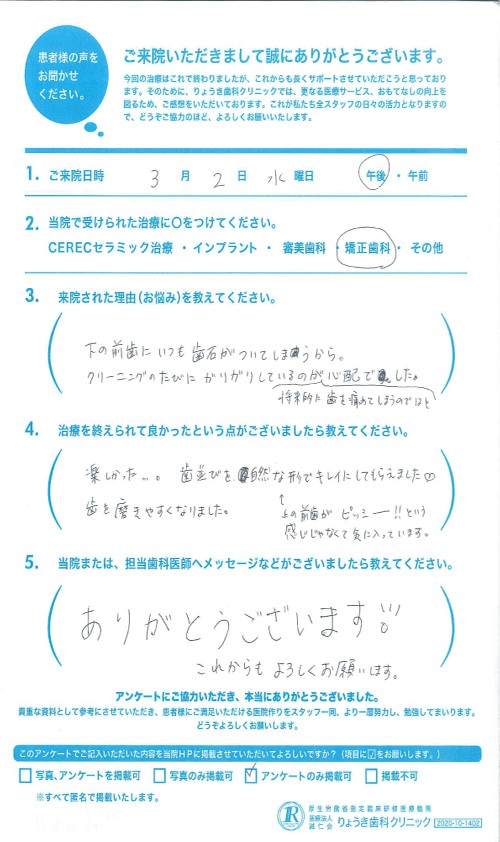 患者様の声を
お聞かせ
ください。
ご来院いただきまして誠にありがとうございます。
今回の治療はこれで終わりましたが、これからも長くサポートさせていただこうと思っており
ます。そのために、りょうき歯科クリニックでは、更なる医療サービス、おもてなしの向上を
図るため、ご感想をいただいております。これが私たち全スタッフの日々の活力となりますの
で、どうぞご協力のほど、よろしくお願いいたします。
1. ご来院日時 3 月 2 日 水 曜日 午後・午前
2. 当院で受けられた治療に〇をつけてください。
CERECセラミック治療 ・ インプラント ・ 審美歯科 ・ 矯正歯科 ・ その他
3. 来院された理由(お悩み)を教えてください。
下の前歯にいつも歯石がついてしまうから。
クリーニングのたびにガリガリしているのが心配でした。
将来的に歯を痛めてしまうのではと
4. 治療を終えられて良かったという点がございましたら教えてください。
楽しかった…。歯並びを自然な形でキレイにしてもらえました♡
歯を磨きやすくなりました。
↑
上の前歯が ピッシー!!という
感じじゃなくて気に入っています。
5. 当院または、担当歯科医師へメッセージなどがございましたら教えてください。
ありがとうございます
これからもよろしくお願いします。
アンケートにご協力いただき、本当にありがとうございました。
貴重な資料として参考にさせていただき、患者様にご満足いただける医院作りをスタッフ一同、より一層努力し、勉強してまいります。
どうぞよろしくお願いします。
このアンケートでご記入いただいた内容を当院HPに掲載させていただいてよろしいですか?(項目に☑をお願いします。)
□写真、アンケートを掲載可 □写真のみ掲載可 ☑アンケートのみ掲載可 □掲載不可
※すべて匿名で掲載いたします。
厚生労働省指定臨床研修医療機関
医療法人
誠仁会 りょうき歯科クリニック 2020-10-1402